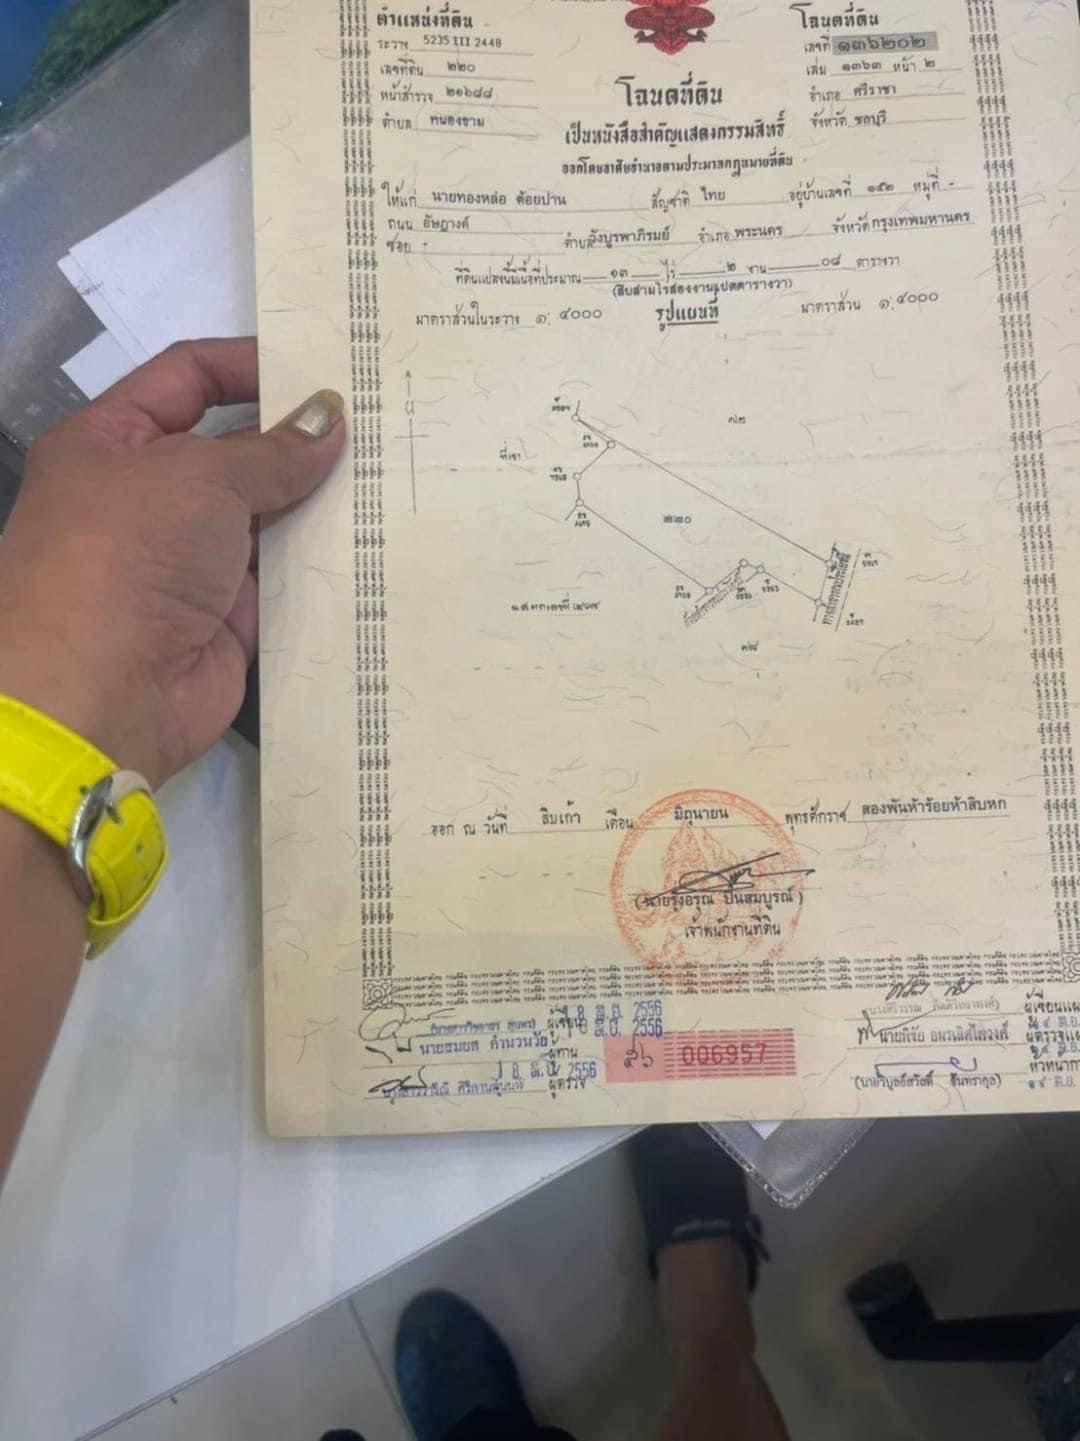 ตำแหน่งที่ดิน
ระวาง 5235 III 2448
เลขที่ดิน ๒๒๐
หน้าสำรวจ ๒๑๖๘๘
ตำบล หนองขาม
โฉนดที่ดิน
เลขที่ ๑๓๖๒๐๒
เล่ม ๑๓๖๓ หน้า ๒
อำเภอ ศรีราชา
จังหวัด ชลบุรี
โฉนดที่ดิน
เป็นหนังสือสำคัญแสดงกรรมสิทธิ์
ออกโดยอาศัยอำนาจตามประมวลกฎหมายที่ดิน
ให้แก่ นายทองหล่อ ต้อยปาน สัญชาติ ไทย อยู่บ้านเลขที่ ๑๕๒ หมู่ที่ -
ถนน อัษฎางค์
ซอย - ตำบล วังบูรพาภิรมย์ อำเภอ พระนคร จังหวัด กรุงเทพมหานคร
ที่ดินแปลงนี้มีเนื้อที่ประมาณ ๑๓ ไร่ ๒ งาน ๐๘ ตารางวา
(สิบสามไร่สองงานแปดตารางวา)
มาตราส่วนในระวาง ๑: ๔๐๐๐ รูปแผนที่ มาตราส่วน ๑:๔๐๐๐
น
ที่เขา
๗๒
๒๒๐
ทางสาธารณประโยชน์
๓๘
ออก ณ วันที่ สิบเก้า เดือน มิถุนายน พุทธศักราช สองพันห้าร้อยห้าสิบหก
(นายรุ่งอรุณ ปิ่นสมบูรณ์)
เจ้าพนักงานที่ดิน
ผู้เขียน 18 มิ.ย. 2556
ผู้ทาน 18 มิ.ย. 2556
ผู้ตรวจ 18 มิ.ย. 2556
๕๖ 006957
ผู้เขียนแผ
ผู้ตรวจแผ
หัวหน้ากา